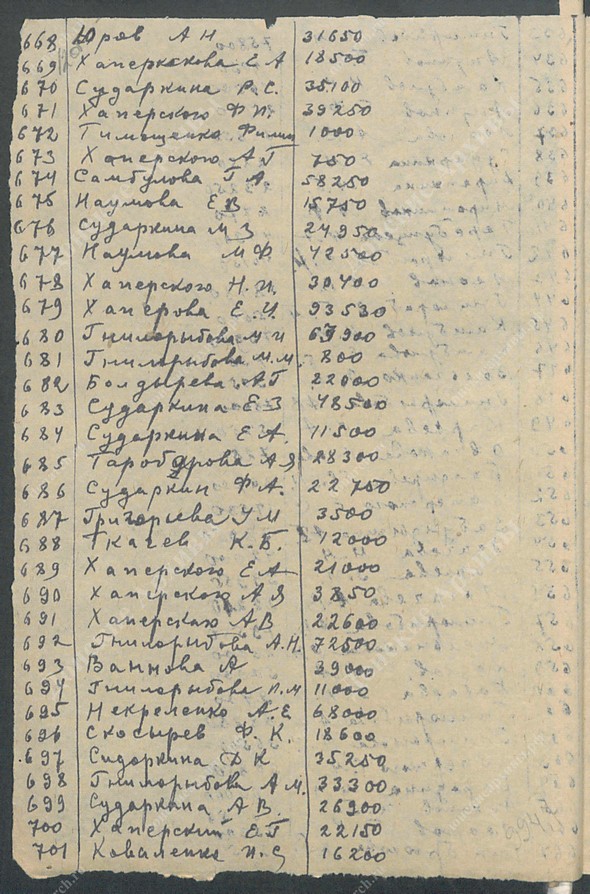 668 Юров А Н 31650
669 Хаперскова Е А 18500
670 Сударкина Р. С. 35100
671 Хаперского Ф П. 39250
672 Тимощенко Филип 1000
673 Хаперского А Г 750
674 Самбулова Г А 58250
675 Наумова Е В 15750
676 Сударкина М З 24950
677 Наумова М Ф 42500
678 Хаперского Н. И. 30400
679 Хаперова Е. И. 93530
680 Гнилорыбова М И 69900
681 Гнилорыбова М. М. 800
682 Болдырева А. Г 22000
683 Сударкина Е З 48500
684 Сударкина Е А. 11500
685 А Я 28300
686 Сударкин Ф А. 22750
687 Григорьева У М 3500
688 Ткачев К. Б. 12000
689 Хаперского Е А 21000
690 Хаперского А Я 3850
691 Хаперского А В 22600
692 Гнилорыбова А. Н. 72500
693 Ваннова А 39000
694 Гнилорыбова П. М 11000
695 Некреленко А. Е 68000
696 Скосырев Ф. К. 18600
697 Сидоркина Д К 35250
698 Гнилорыбова А М. 33300
699 Сударкина А В 26900
700 Хаперский Е Г 22150
701 Коваленко П. С 16200